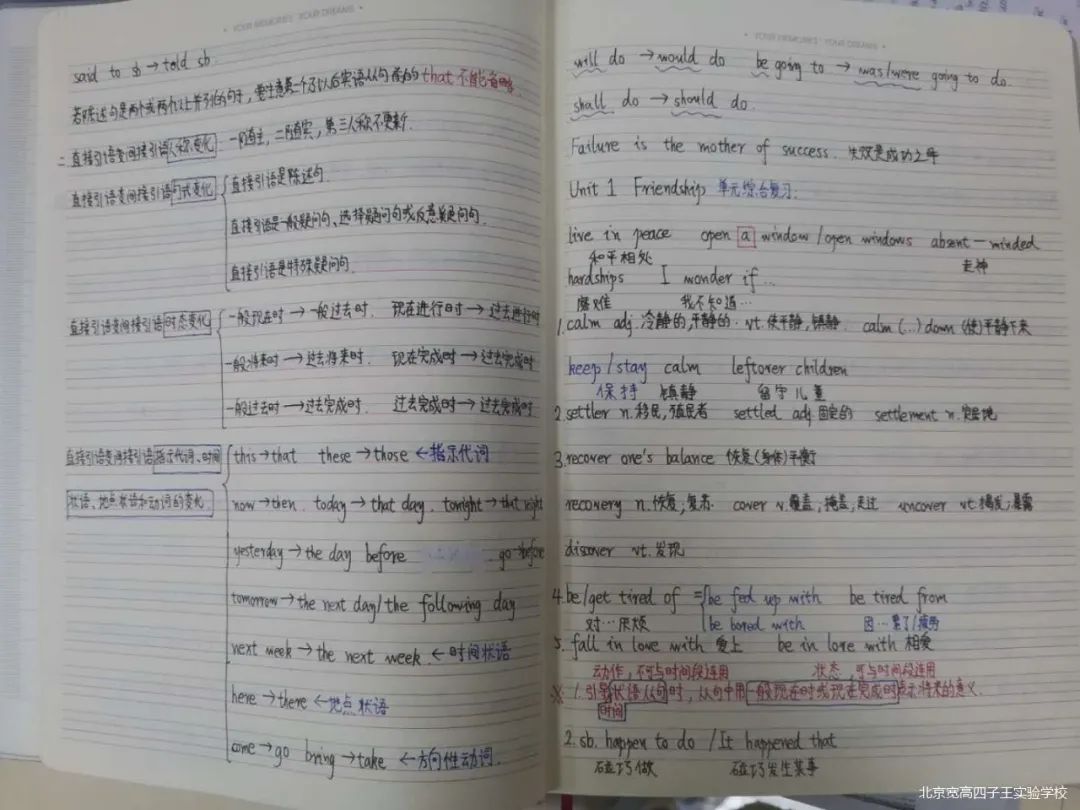 YOUR MEMORIES YOUR DREAMS
said to sb → told sb.
若陈述句是两个或两个以上并列的句子，要注意第二个及以后宾语从句前的that不能省略.
二.直接引语变间接引语人称变化：一随主，二随宾，第三人称不更新.
直接引语变间接引语句式变化
直接引语是陈述句.
直接引语是一般疑问句、选择疑问句或反意疑问句.
直接引语是特殊疑问句.
直接引语变间接引语时态变化
一般现在时→一般过去时. 现在进行时→过去进行时
一般将来时→过去将来时. 现在完成时→过去完成时
一般过去时→过去完成时. 过去完成时→过去完成时
直接引语变间接引语指示代词、时间
状语、地点状语和动词的变化.
this→that these→those ←指示代词
now→then. today→that day. tonight→that night
yesterday→the day before go→before
tomorrow→the next day/the following day
next week→the next week. ←时间状语
here→there ←地点状语
come→go bring→take ←方向性动词.
YOUR MEMORIES YOUR DREAMS
will do → would do be going to → was/were going to do.
shall do → should do.
Failure is the mother of success. 失败是成功之母
Unit 1 Friendship 单元综合复习.
live in peace open a window/open windows absent-minded
和平相处 走神
hardships I wonder if...
磨难 我不知道...
1.calm adj.冷静的,平静的. vt.使平静,镇静. calm (...) down (使)平静下来
keep/stay calm leftover children
保持 镇静 留守儿童
2.settler n.移民,殖民者 settled adj.固定的 settlement n.定居地
3.recover one's balance 恢复(身体)平衡
recovery n.恢复;复苏. cover v.覆盖;掩盖;走过 uncover vt.揭发;暴露
discover vt.发现
4.be/get tired of = be fed up with be tired from
对…厌烦 be bored with 因…累了/疲劳
5. fall in love with 爱上 be in love with 相爱
动作,不可与时间段连用 状态,可与时间段连用
※ 1.引导状语从句时,从句中用一般现在时或现在完成时表示将来的意义.
时间
2. sb. happen to do / It happened that
碰巧做 碰巧发生某事
北京宽高四子王实验学校